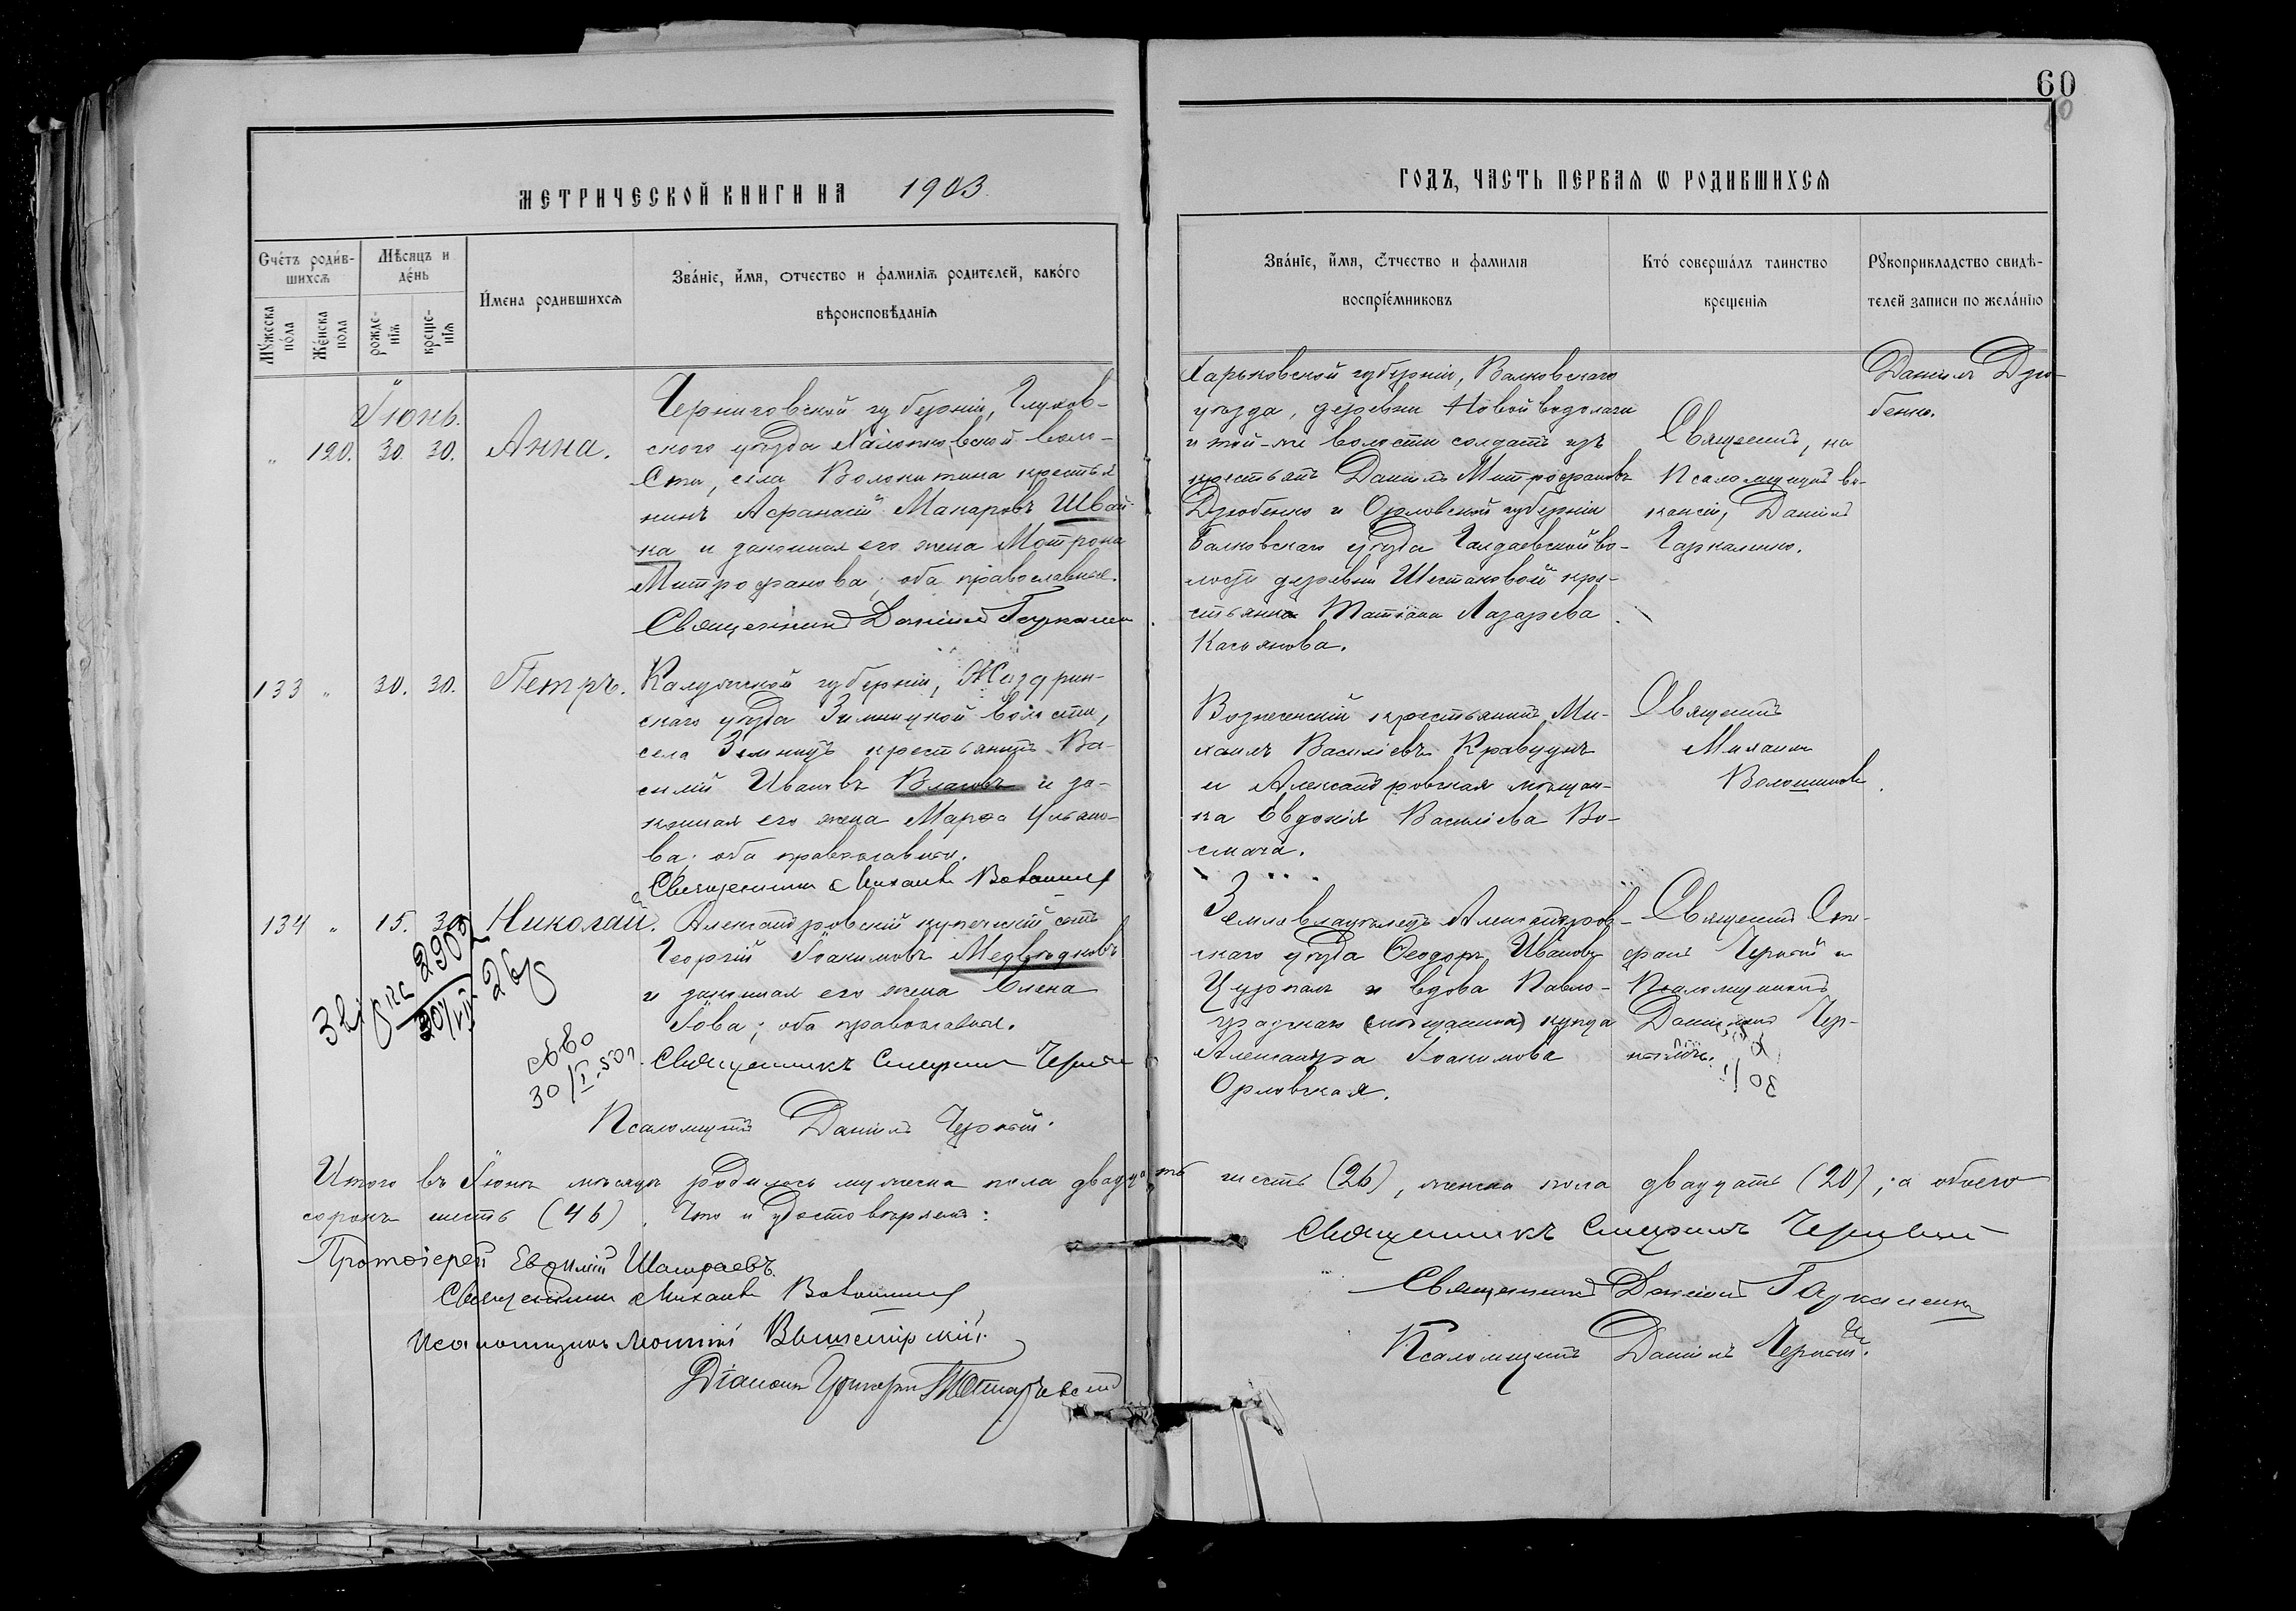 60
60
МЕТРИЧЕСКОЙ КНИГИ НА 1903
ГОДЪ, ЧАСТЬ ПЕРВАЯ Ѡ РОДИВШИХСЯ
Счетъ родив-
шихся
Мѣсяцъ и
день
Имена родившихся
Званіе, имя, отчество и фамилія родителей, какого
вѣроисповѣданія
Мужеска
пола
Женска
пола
рожде-
нія
креще-
нія
Званіе, имя, отчество и фамилія
воспріемниковъ
Кто совершалъ таинство
крещенія
Рукоприкладство свидѣ-
телей записи по желанію
Іюнь.
„ 120. 30. 30. Анна.
Черниговской губерніи, Глухов-
ского уѣзда воло-
сти, села Волокитина крестья
нинъ Афанасій Макаровъ Швай-
ка и законная его жена Мотрона
Митрофанова; оба православные.
Священникъ Даніилъ Гаркаленко
Харьковской губерніи, Валковскаго
уѣзда, деревни Новой водолаги
и той-же волости солдатъ изъ
крестьянъ Даніилъ Митрофановъ
Дзюбенко и Орловской губерніи
уѣзда во-
лости деревни Шестаковой кре-
стьянка Татіана Лазарева
Касьянова.
Священникъ, на
Псаломщицкой ва-
кансіи, Даніилъ
Гаркаленко.
Даніилъ Дзю-
бенко.
133 „ 30. 30. Петръ.
Калужской губерніи, Жиздрин-
скаго уѣзда Зимницкой волости,
села Зимницъ крестьянинъ Ва-
силій Ивановъ Власовъ и за-
конная его жена Марѳа Ульяно-
ва; оба православные.
Священникъ Михаилъ Волошинъ
Вознесенскій крестьянинъ Ми-
хаилъ Василіевъ Кравцунъ
и Александровская мѣщан-
ка Евдокія Василіева Во-
смага.
Священникъ
Михаилъ
Волошиновъ.
134 „ 15. 30. Николай.
Александровскій купеческій сынъ
Георгій Іоакимовъ Медвѣдковъ
и законная его жена Елена
Іова; оба православные.
Священникъ Спиридонъ Черный
Псаломщикъ Даніилъ Черный.
Землевладѣлецъ Александров-
скаго уѣзда Ѳеодоръ Ивановъ
и вдова Павло-
градскаго (мѣщанина) купца
Александра Іоакимова
Орловская.
Священникъ
Черный и
Псаломщикъ
Даніилъ Чер-
свво
Итого въ Іюнѣ мѣсяцѣ родилось мужеска пола двадцать шесть (26), женска пола двадцать (20), а обоего
сорокъ шесть (46). Что и удостовѣряемъ:
Протоіерей Евѳимій
Священникъ Михаилъ Волошинъ
Псаломщикъ
Діаконъ
Священникъ Черный
Священникъ Даніилъ Гаркаленко
Псаломщикъ Даніилъ Черный.